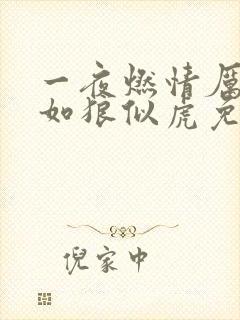 一夜燃情厲
如狼似虎免
倪家中